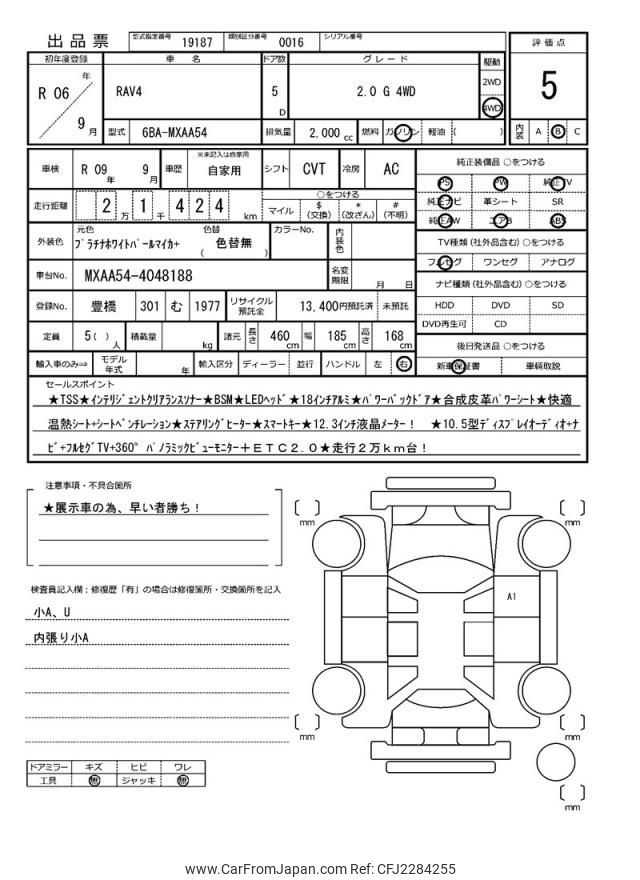 出品票 型式指定番号 19187 類別区分番号 0016 シリアル番号
評価点
初年度登録 車名 ドア数 グレード 駆動
R 06 年 9 月 RAV4 5 D 2.0 G 4WD 2WD 4WD
5
型式 6BA-MXAA54 排気量 2,000 cc 燃料 ガソリン 軽油 ( ) 内装 A B C
車検 R 09 年 9 月 車歴 ※未記入は自家用 自家用 シフト CVT 冷房 AC
純正装備品 ○をつける
PS PW 純正TV
純正ナビ 革シート SR
純正AW エアB ABS
走行距離 2 万 1 千 4 2 4 km
○をつける
マイル $ (交換) * (改ざん) # (不明)
外装色 元色 ﾌﾟﾗﾁﾅﾎﾜｲﾄﾊﾟｰﾙﾏｲｶ+ 色替 ( 色替無 ) カラーNo. 内装色
TV種類 (社外品含む) ○をつける
フルセグ ワンセグ アナログ
車台No. MXAA54-4048188 名変期限 月 日
ナビ種類 (社外品含む) ○をつける
HDD DVD SD
DVD再生可 CD
登録No. 豊橋 301 む 1977 リサイクル預託金 13,400円預託済 未預託
定員 5( ) 人 積載量 kg 諸元 長さ 460 cm 幅 185 cm 高さ 168 cm
後日発送品 ○をつける
新車保証書 車輌取説
輸入車のみ⇨ モデル年式 年 輸入区分 ディーラー 並行 ハンドル 左 右
セールスポイント
★TSS★ｲﾝﾃﾘｼﾞｪﾝﾄｸﾘｱﾗﾝｽｿﾅｰ★BSM★LEDﾍｯﾄﾞ★18ｲﾝﾁｱﾙﾐ★ﾊﾟﾜｰﾊﾞｯｸﾄﾞｱ★合成皮革ﾊﾟﾜｰｼｰﾄ★快適
温熱ｼｰﾄ+ｼｰﾄﾍﾞﾝﾁﾚｰｼｮﾝ★ｽﾃｱﾘﾝｸﾞﾋｰﾀｰ★ｽﾏｰﾄｷｰ★12.3ｲﾝﾁ液晶ﾒｰﾀｰ！ ★10.5型ﾃﾞｨｽﾌﾟﾚｲｵｰﾃﾞｨｵ+ﾅ
ﾋﾞ+ﾌﾙｾｸﾞTV+360°ﾊﾟﾉﾗﾐｯｸﾋﾞｭｰﾓﾆﾀｰ＋ＥＴＣ２.０★走行２万ｋｍ台！
注意事項・不具合箇所
★展示車の為、早い者勝ち！
検査員記入欄：修復歴「有」の場合は修復箇所・交換箇所を記入
小A、U
内張り小A
ドアミラー キズ ヒビ ワレ
工具 無 ジャッキ 無
mm
mm
A1
mm
mm
mm
www.CarFromJapan.com Ref: CFJ2284255